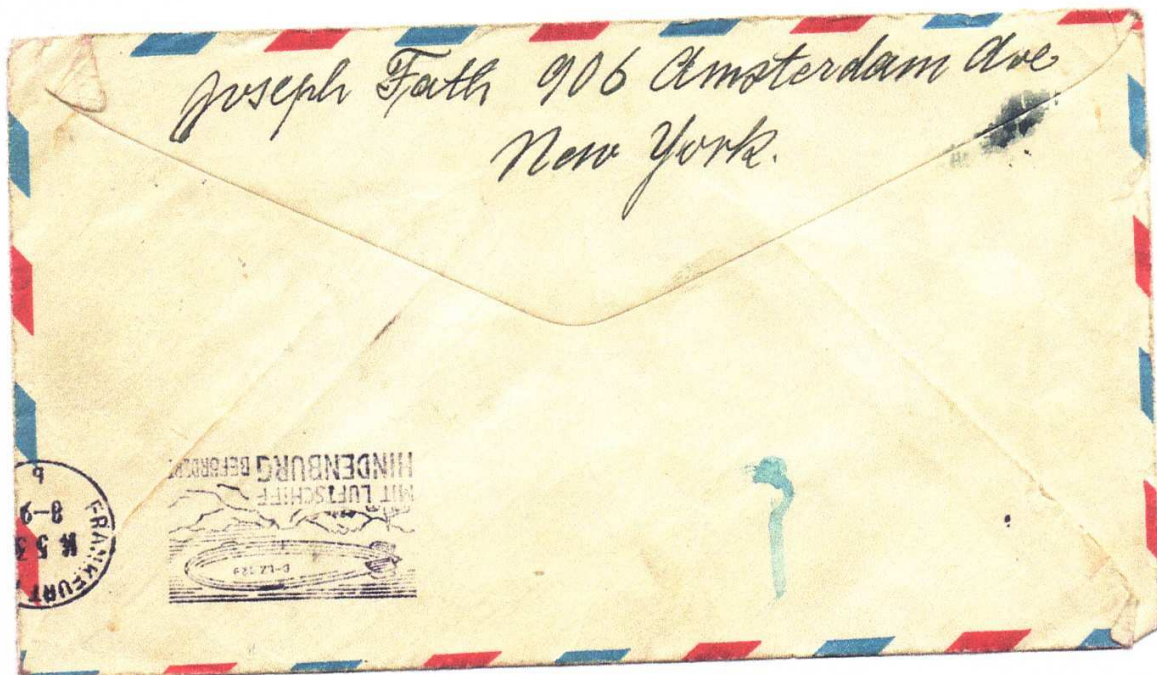 Joseph Fath 906 Amsterdam Ave
New York.
D-LZ 129
MIT LUFTSCHIFF
HINDENBURG BEFÖRDERT
FRANKFURT
8-9